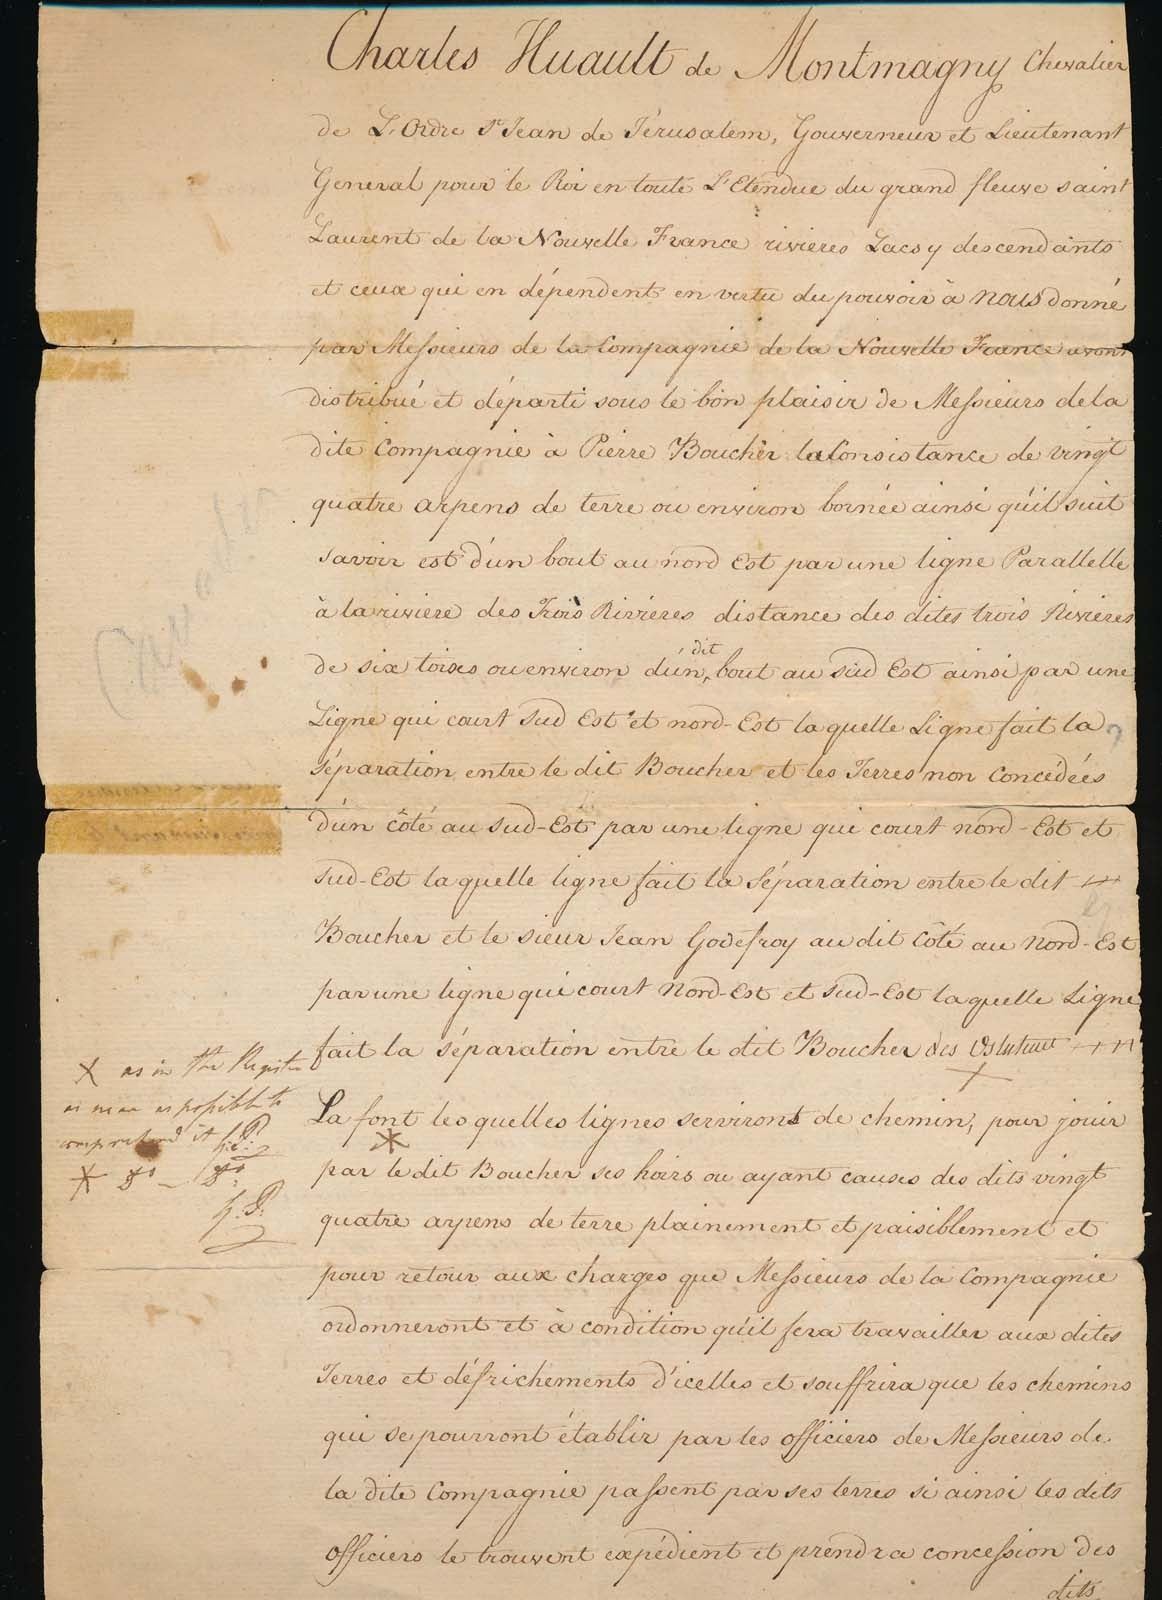 Charles Huault de Montmagny Chevalier
de L'Ordre St Jean de Jérusalem, Gouverneur et Lieutenant
General pour le Roi en toute L'Etendue du grand fleuve saint
Laurent de la Nouvelle France rivieres Lacs y descendànts
et ceux qui en dépendent en vertu du pouvoir à nous donné
par Messieurs de la Compagnie de la Nouvelle France avons
distribué et départi sous le bon plaisir de Messieurs de la
dite Compagnie à Pierre Boucher la Consistance de vingt
quatre arpens de terre ou environ bornée ainsi qu'il suit
savoir est d'un bout au nord Est par une ligne Parallelle
à la riviere des Trois Rivières distance des dites trois Rivières
de six toises ou environ d'un dit bout au sud Est ainsi par une
Ligne qui court Sud Est et nord-Est la quelle Ligne fait la
séparation entre le dit Boucher et les Terres non Concédées
d'un côté au sud-Est par une ligne qui court nord-Est et
sud-Est la quelle ligne fait la Séparation entre le dit
Boucher et le sieur Jean Godefroy au dit Côté au Nord-Est
par une ligne qui court Nord-Est et sud-Est la quelle Ligne
fait la séparation entre le dit Boucher des
La font les quelles lignes serviront de chemin, pour jouir
par le dit Boucher ses hoirs ou ayant causes des dits vingt
quatre arpens de terre plainement et paisiblement et
pour retour aux charges que Messieurs de la Compagnie
ordonneront et à condition qu'il fera travailler aux dites
Terres et défrichements d'icelles et souffrira que les chemins
qui se pourront établir par les officiers de Messieurs de
la dite Compagnie passent par ses terres si ainsi les dits
officiers le trouvent expédient et prendra concession des
dits
X as in the Register
as near as possible to
comprehend it